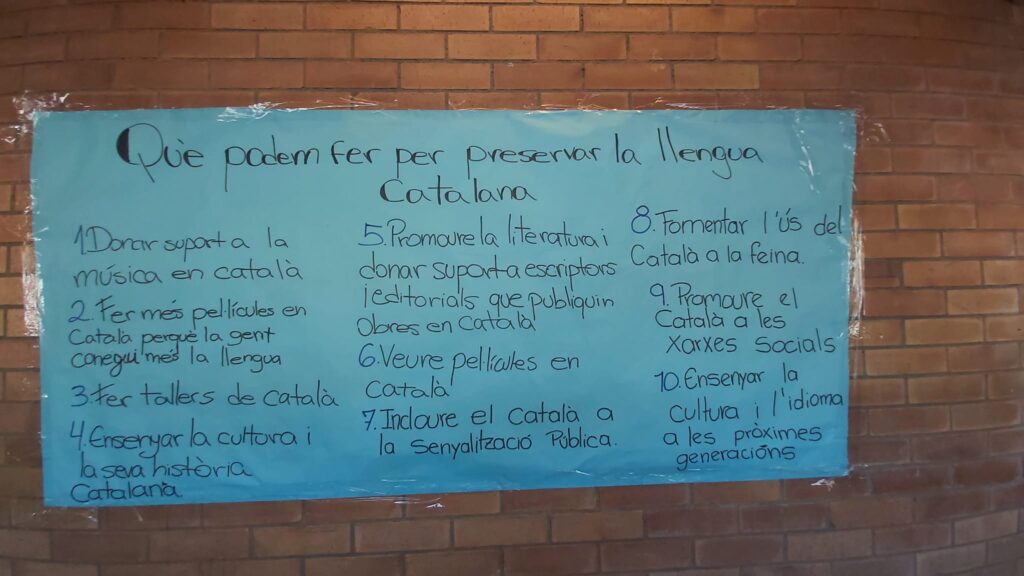 Què podem fer per preservar la llengua
Catalana
1. Donar suport a la
música en català
2. Fer més pel·lícules en
Català perquè la gent
conegui més la llengua
3. Fer tallers de català
4. Ensenyar la cultura i
la seva història
Catalana
5. Promoure la literatura i
donar suport a escriptors
i editorials que publiquin
Obres en Català
6. Veure pel·lícules en
Català
7. Incloure el Català a
la senyalització Pública.
8. Fomentar l'ús del
Català a la feina.
9. Promoure el
Català a les
xarxes socials
10. Ensenyar la
cultura i l'idioma
a les pròximes
generacións